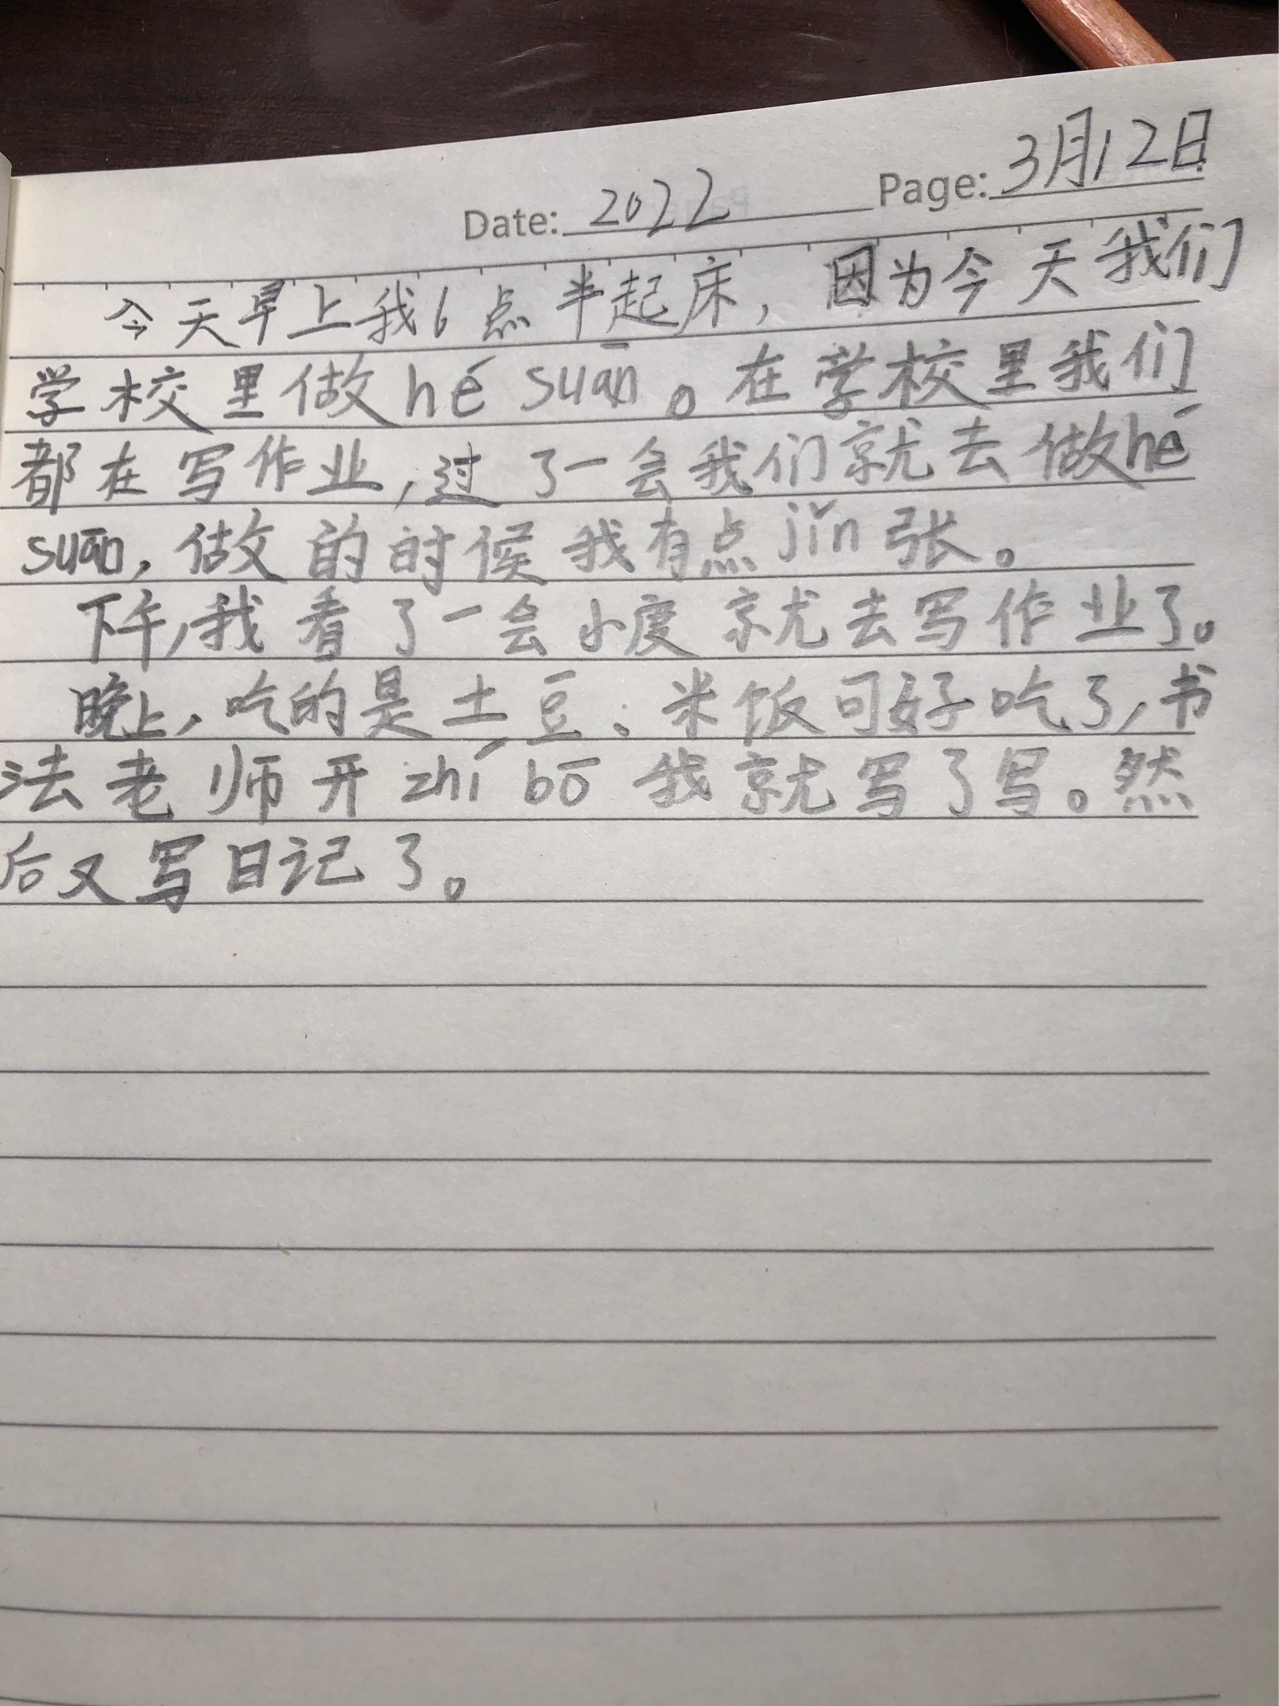 Date: 2022 Page: 3月12日
今天早上我6点半起床，因为今天我们
学校里做hé suān。在学校里我们
都在写作业，过了一会我们就去做hé
suān，做的时候我有点jǐn张。
下午，我看了一会小度就去写作业了。
晚上，吃的是土豆、米饭可好吃了，书
法老师开zhí bō我就写了写。然
后又写日记了。